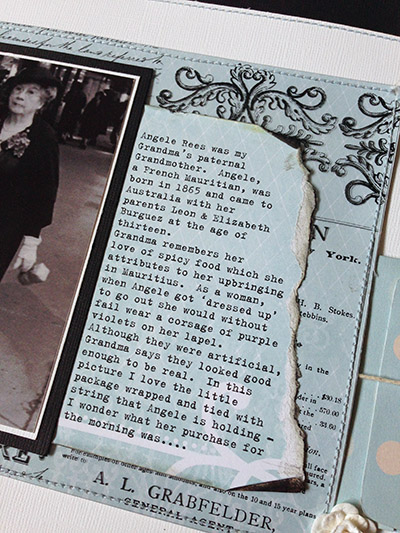 Angele Rees was my
Grandma's paternal
Grandmother. Angele,
a French Mauritian, was
born in 1865 and came to
Australia with her
parents Leon & Elizabeth
Burguez at the age of
thirteen.
Grandma remembers her
love of spicy food which she
attributes to her upbringing
in Mauritius. As a woman,
when Angele got 'dressed up'
to go out she would without
fail wear a corsage of purple
violets on her lapel.
Although they were artificial,
Grandma says they looked good
enough to be real. In this
picture I love the little
package wrapped and tied with
string that Angele is holding -
I wonder what her purchase for
the morning was....
N
York.
H. B. Stokes.
ebbins.
$30.18
in 570.00
33.00
ll face
also on the 10 and 15 year plans
write to
A. L. GRABFELDER,
GENERAL AGENT